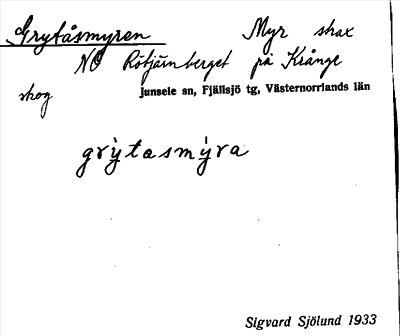 Grytåsmyren Myr strax
NO Rötjärnberget på Krånge
skog Junsele sn, Fjällsjö tg, Västernorrlands län
grỳtasmỳra
Sigvard Sjölund 1933